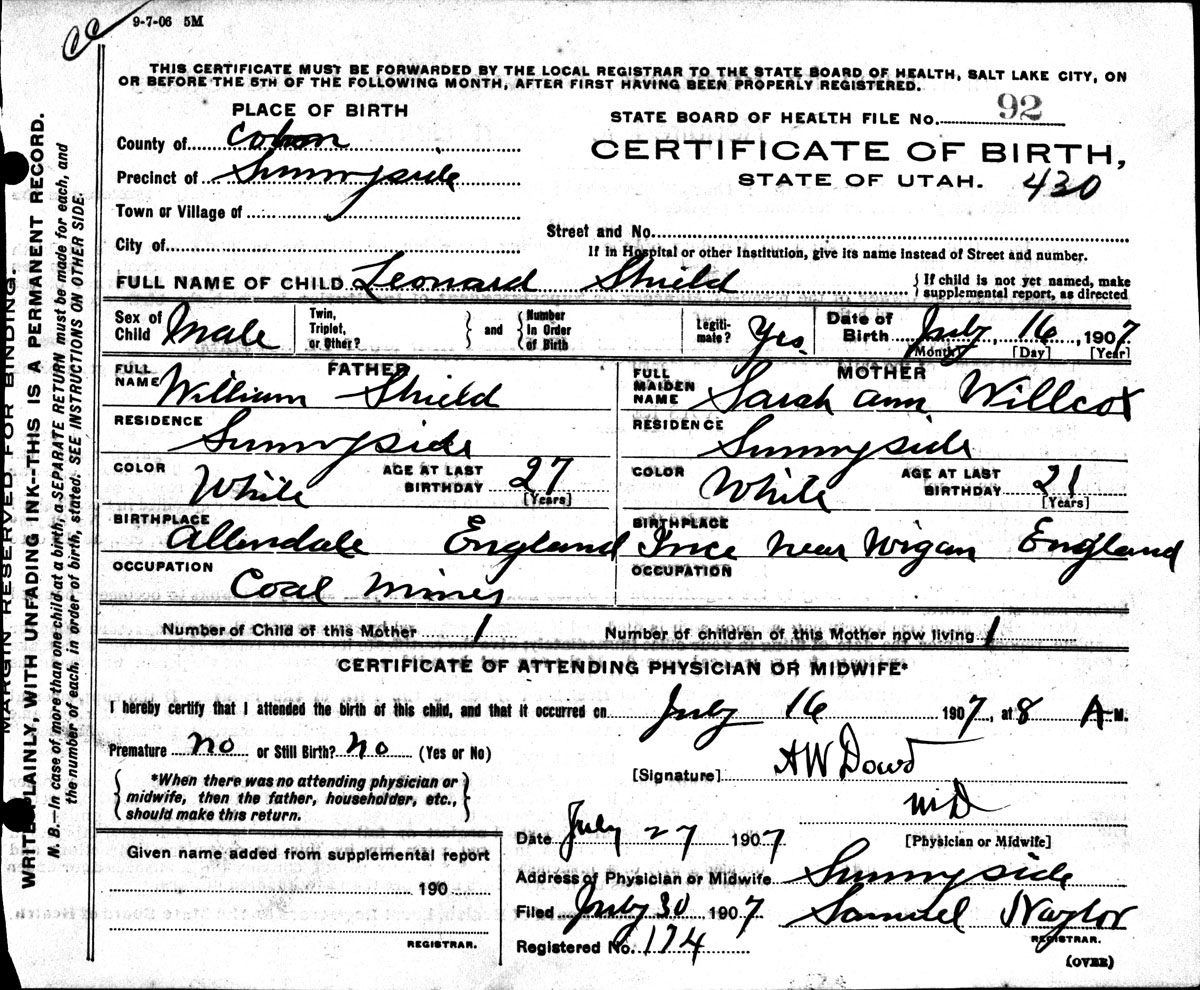 9-7-06 5M
THIS CERTIFICATE MUST BE FORWARDED BY THE LOCAL REGISTRAR TO THE STATE BOARD OF HEALTH, SALT LAKE CITY, ON
OR BEFORE THE 5TH OF THE FOLLOWING MONTH, AFTER FIRST HAVING BEEN PROPERLY REGISTERED.
PLACE OF BIRTH
STATE BOARD OF HEALTH FILE No. 92
County of
CERTIFICATE OF BIRTH,
Precinct of Sunnyside
STATE OF UTAH. 430
Town or Village of
Street and No.
City of
If in Hospital or other Institution, give its name instead of Street and number.
FULL NAME OF CHILD Leonard Shield { If child is not yet named, make
supplemental report, as directed
Sex of Child Male Twin, Triplet, or Other? } and { Number In Order of Birth Legiti-mate? Yes Date of Birth July, 16, 1907
[Month] [Day] [Year]
FATHER
FULL NAME William Shield
MOTHER
FULL MAIDEN NAME Sarah Ann Willcox
RESIDENCE Sunnyside
RESIDENCE Sunnyside
COLOR White AGE AT LAST BIRTHDAY 27 [Years]
COLOR White AGE AT LAST BIRTHDAY 21 [Years]
BIRTHPLACE Allendale England
BIRTHPLACE Ince near Wigan England
OCCUPATION Coal Miner
OCCUPATION
Number of Child of this Mother 1 Number of children of this Mother now living 1
CERTIFICATE OF ATTENDING PHYSICIAN OR MIDWIFE*
I hereby certify that I attended the birth of this child, and that it occurred on July 16 1907, at 8 A M.
Premature no or Still Birth? no (Yes or No)
[Signature] A W Dowd
*When there was no attending physician or
midwife, then the father, householder, etc.,
should make this return.
MD
[Physician or Midwife]
Date July 27 1907
Given name added from supplemental report
190
REGISTRAR.
Address of Physician or Midwife Sunnyside
Filed July 30 1907 Samuel Naylor
REGISTRAR.
Registered No. 174
(OVER)
MARGIN RESERVED FOR BINDING.
WRITE PLAINLY, WITH UNFADING INK--THIS IS A PERMANENT RECORD.
N. B.—In case of more than one child at a birth, a SEPARATE RETURN must be made for each, and
the number of each, in order of birth, stated. SEE INSTRUCTIONS ON OTHER SIDE.